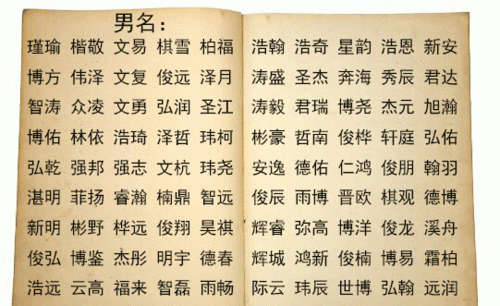 男名：
瑾瑜 楷敬 文易 棋雪 柏福
博方 伟泽 文复 俊远 泽月
智涛 众凌 文勇 弘润 圣江
博佑 林依 浩琦 泽哲 玮柯
弘乾 强邦 强志 文杭 玮尧
湛明 菲扬 睿瀚 楠鼎 智远
新明 彬野 桦远 俊翔 昊祺
俊弘 博鉴 杰彤 明宇 德春
浩远 云高 福来 智磊 雨畅
浩翰 浩奇 星韵 浩恩 新安
涛盛 圣杰 奔海 秀辰 君达
涛毅 君瑞 博尧 杰元 旭瀚
彬豪 哲南 俊桦 轩庭 弘佑
安逸 德佑 仁鸿 俊朋 翰羽
俊辰 雨博 晋欧 棋观 德博
辉睿 弥高 博洋 俊龙 溪舟
辉城 鸿新 俊楠 博易 霜柏
际云 玮辰 世博 弘翰 远润